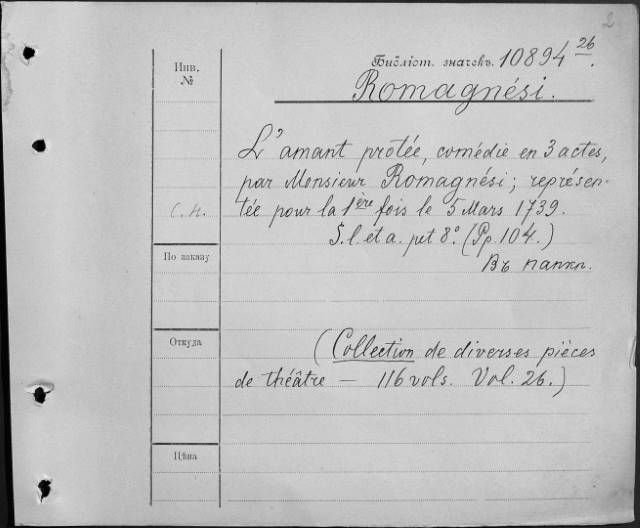 2
Инв.
№
Библіот. значекъ. 10894 26.
Romagnési.
L'amant protée, comédie en 3 actes,
par Monsieur Romagnési; représen-
tée pour la 1ère fois le 5 Mars 1739.
S. l. et a. pet 8º. (Pp. 104.)
Въ папкѣ.
С. н.
По заказу
Откуда
(Collection de diverses pièces
de théâtre — 116 vols. Vol. 26.)
Цѣна